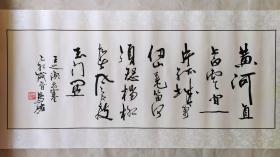 黄河直
上白雲間一
片孤城萬
仞山羌笛何
須怨楊柳
春風不度
玉門關
王之涣出塞